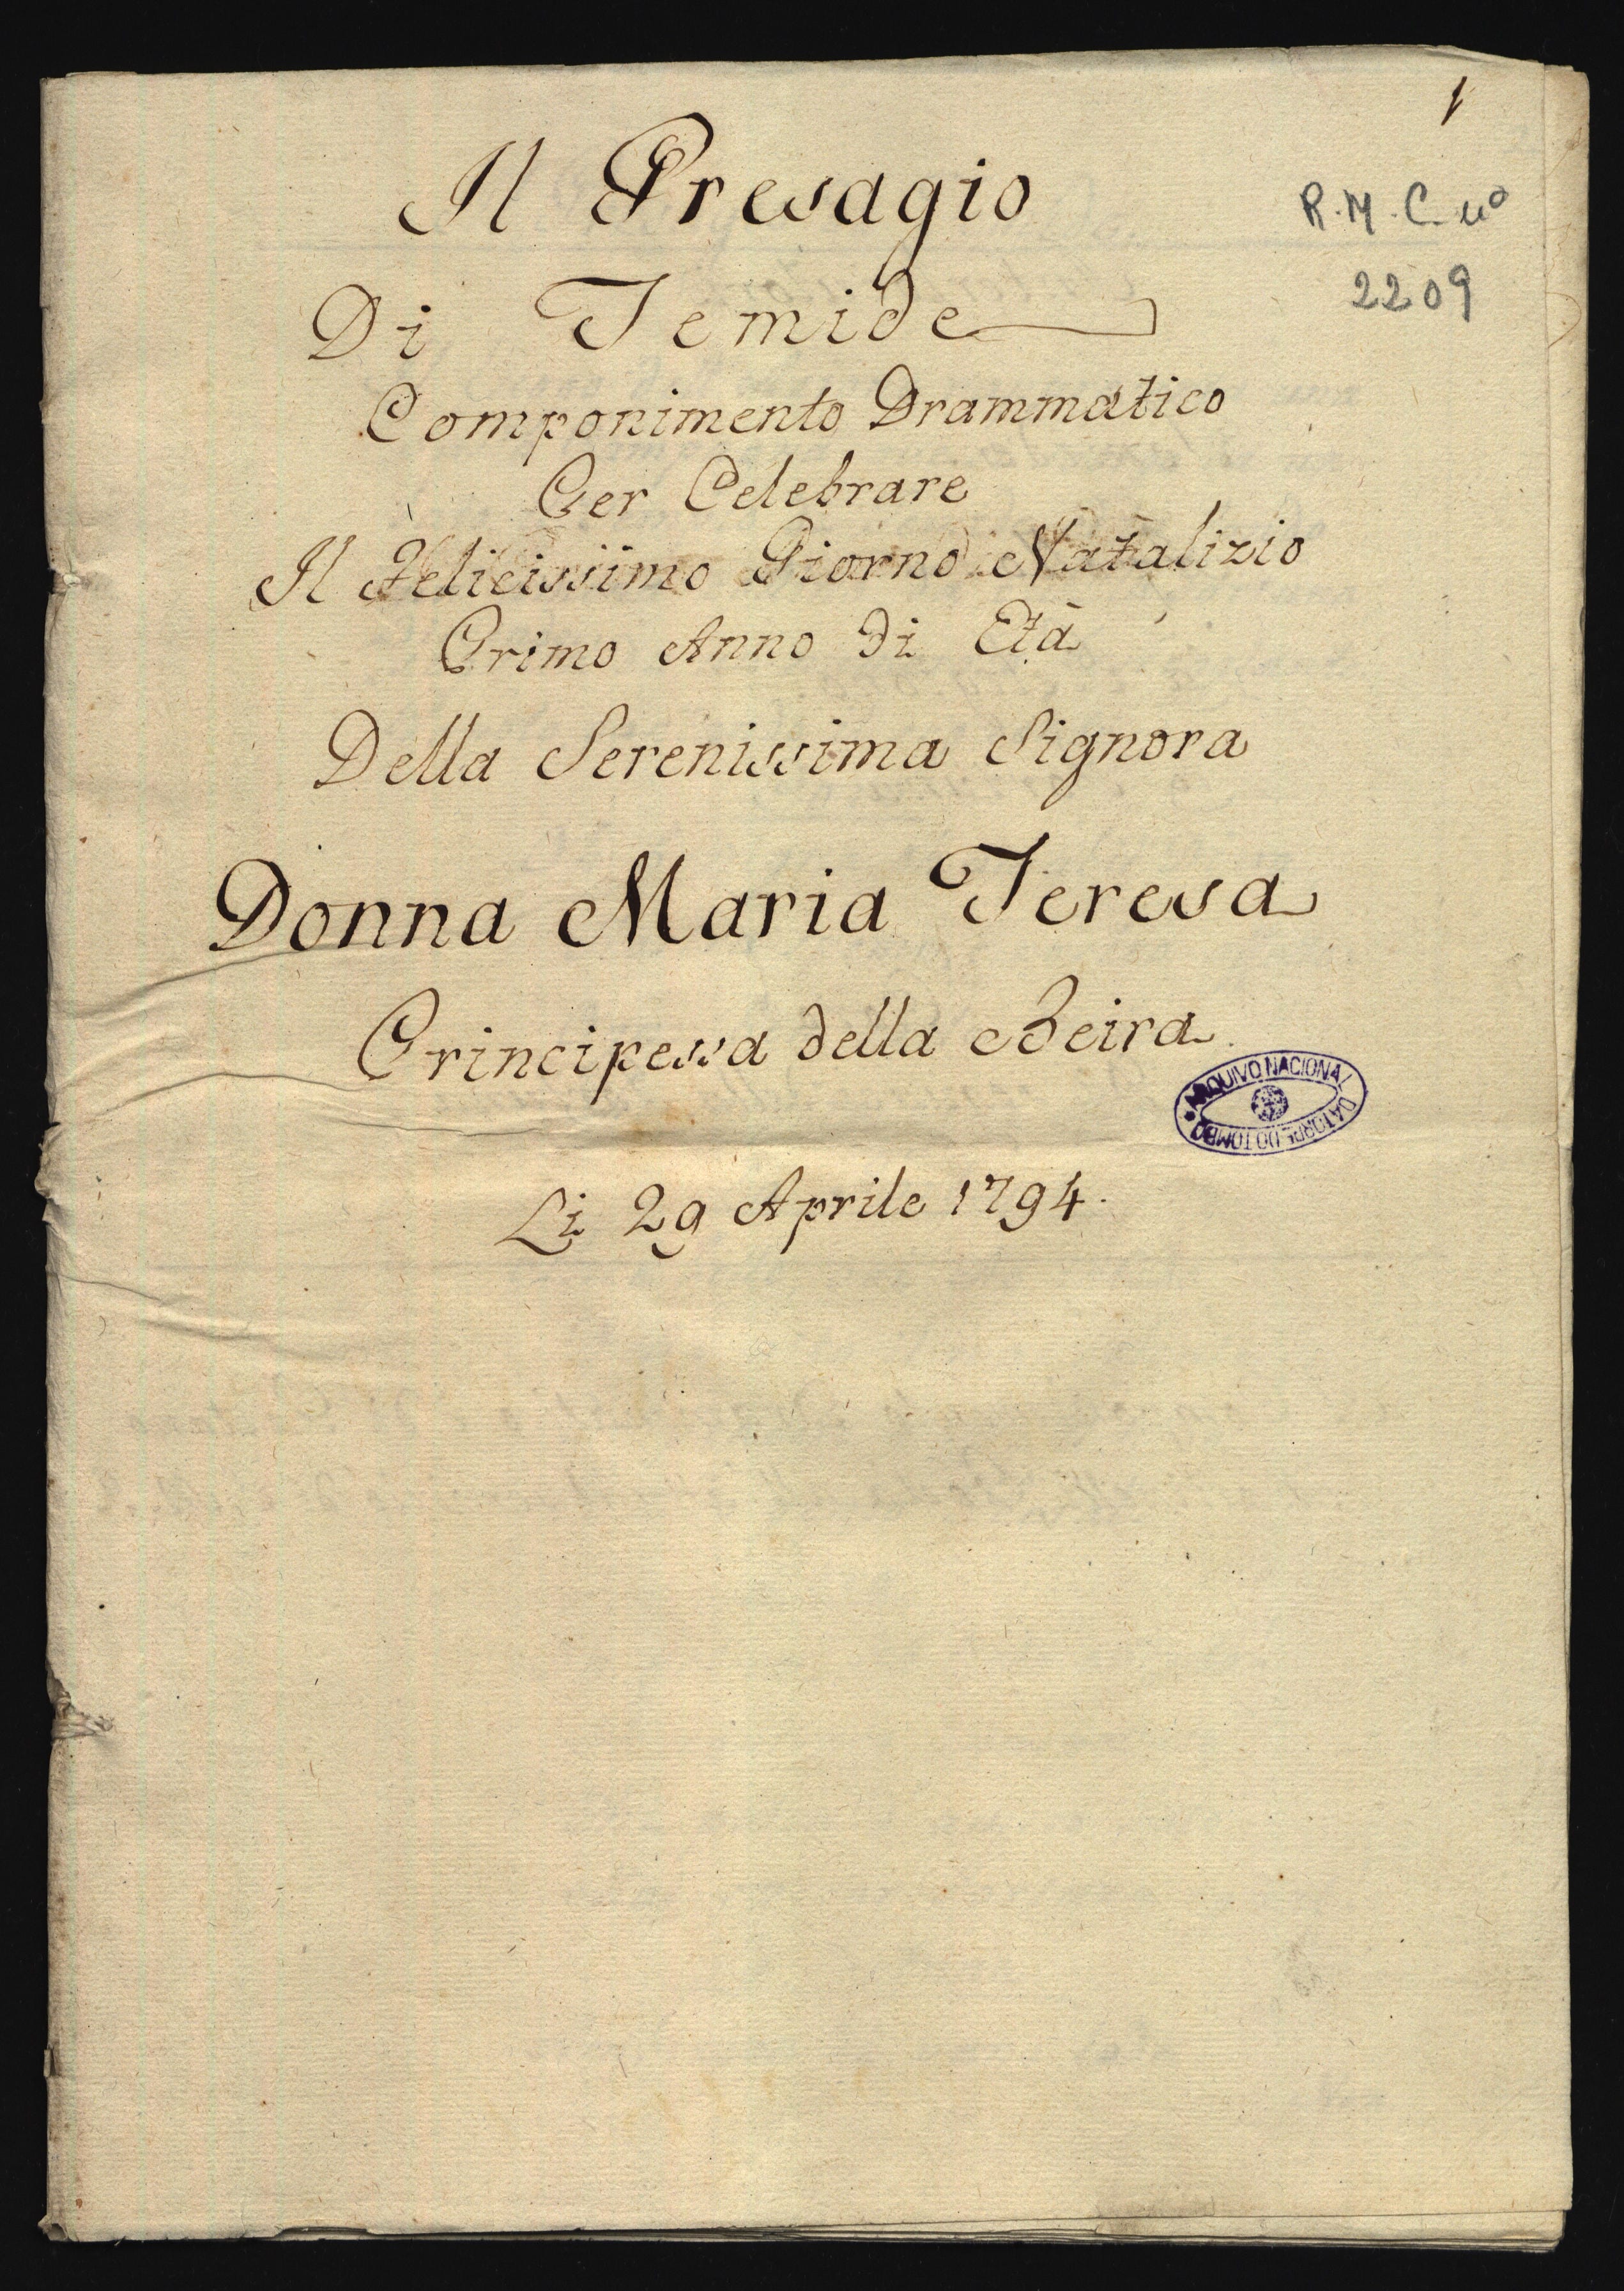 1
R.M.C. nº
2209
Il Presagio
Di Temide
Componimento Drammatico
Per Celebrare
Il Felicissimo Giorno Natalizio
Primo Anno di Età
Della Serenissima Signora
Donna Maria Teresa
Principessa della Beira.
ARQUIVO NACIONAL DA TORRE DO TOMBO
Li 29 Aprile 1794.